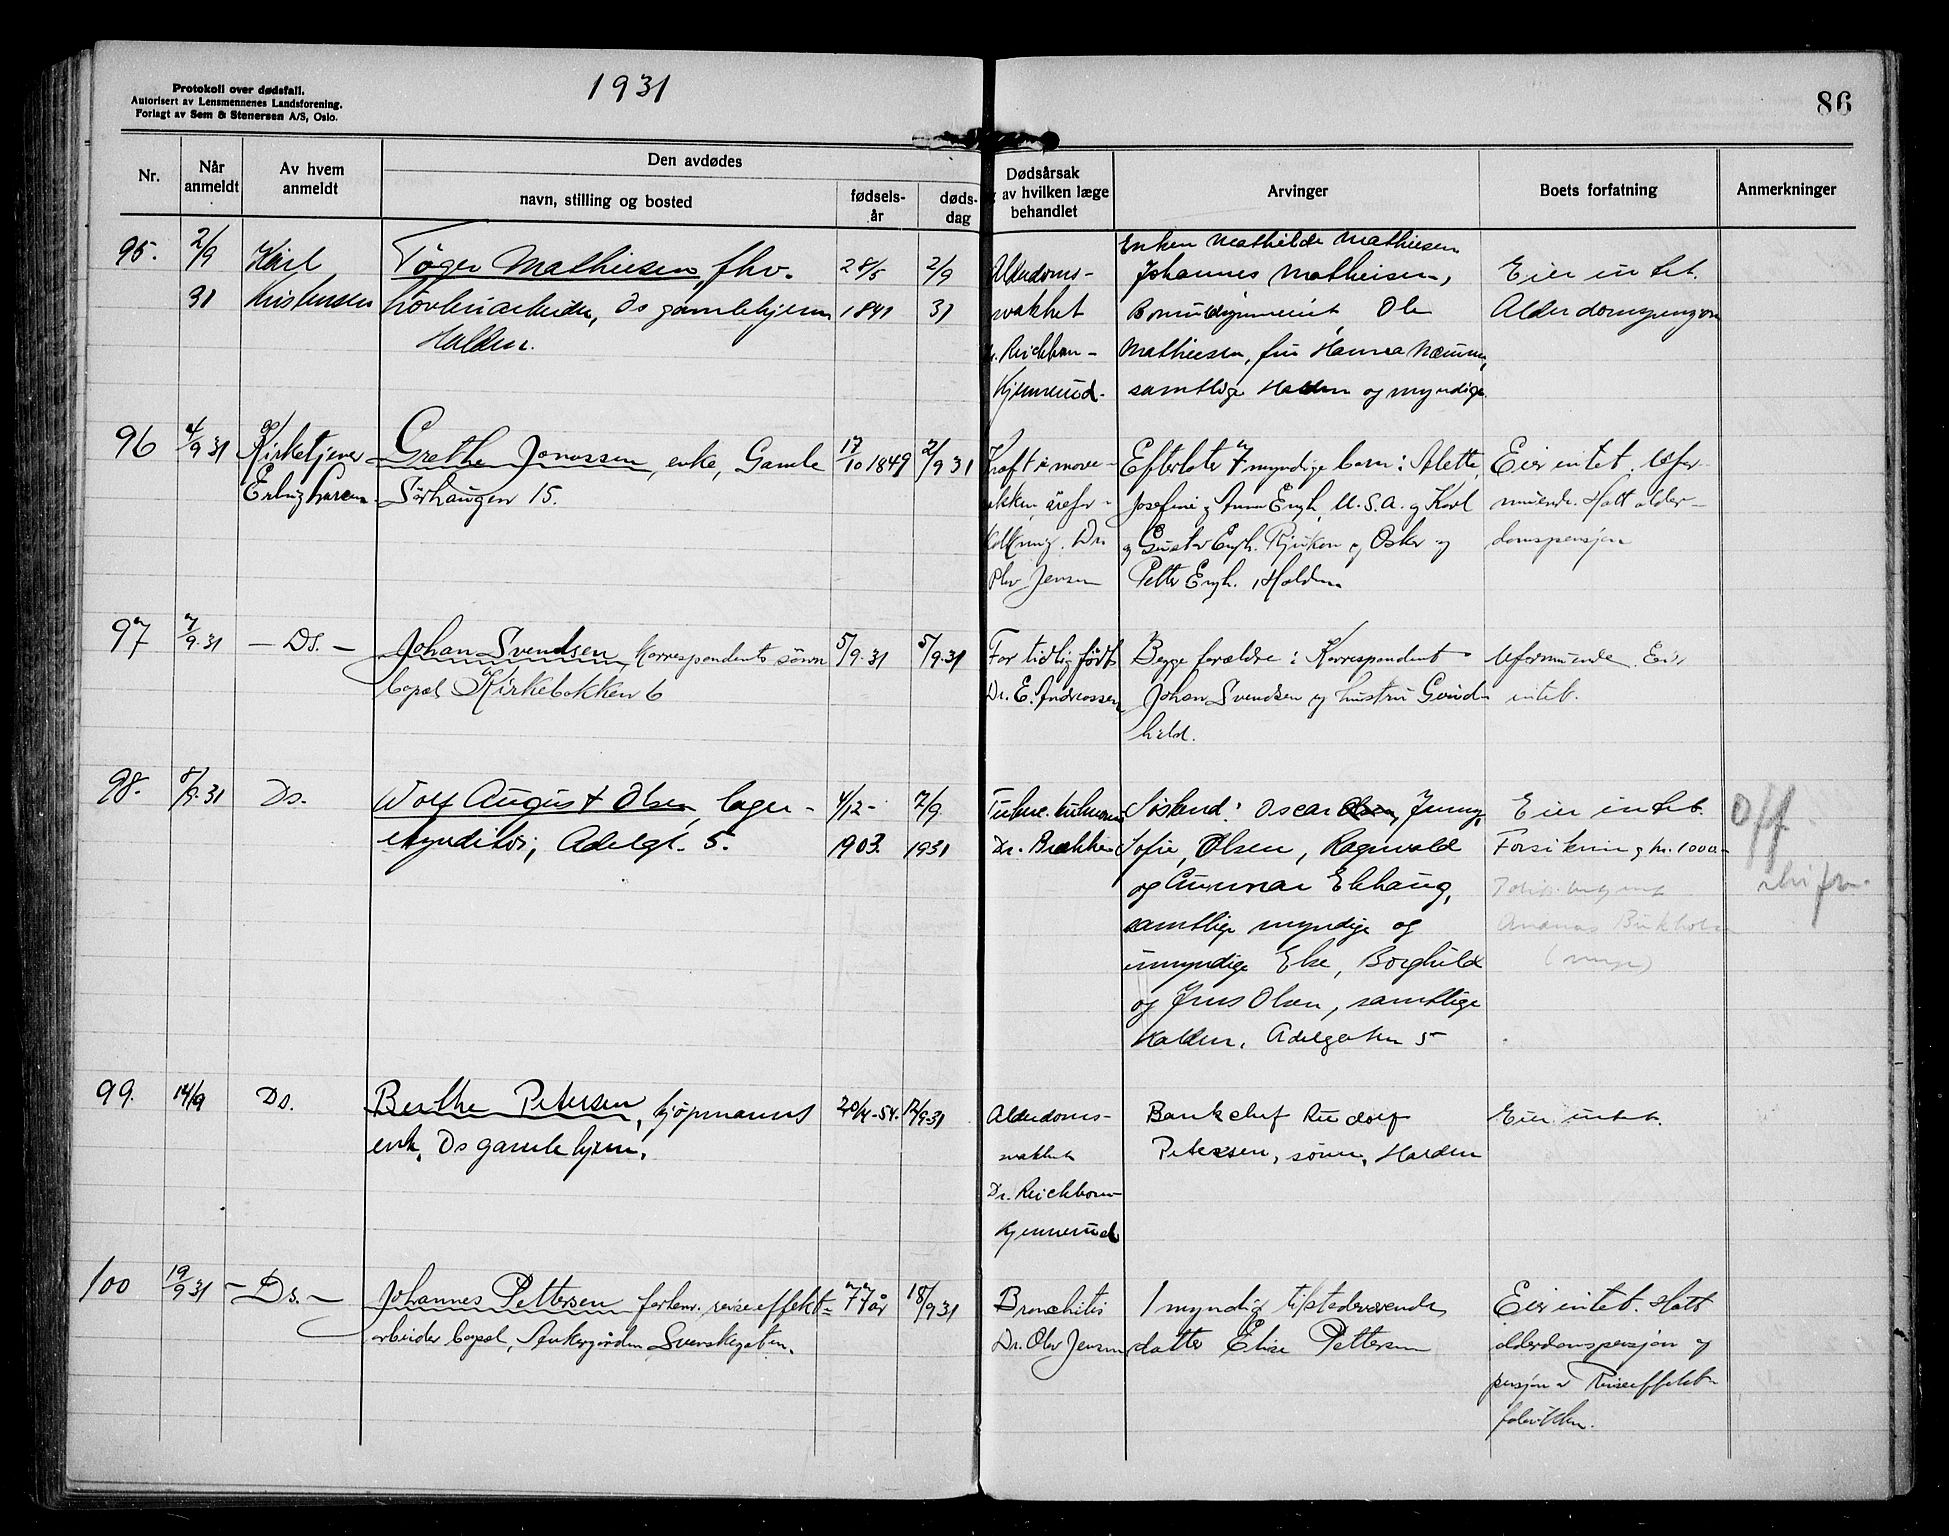 Protokoll over dødsfall.
Autorisert av Lensmennenes Landsforening.
Forlagt av Sem & Stenersen A/S, Oslo.
1931
86
Nr.
Når anmeldt
Av hvem anmeldt
Den avdødes
navn, stilling og bosted
fødsels-år
døds-dag
Dødsårsak
av hvilken læge
behandlet
Arvinger
Boets forfatning
Anmerkninger
95.
2/9
31
Karl
Kristensen
Tøger Mathiesen, fhv.
Ds gamlehjem
Halden.
28/5
1841
2/9
31
Alderdoms-
svakhet
Reichborn-
Kjennerud.
Enken Mathilde Mathiesen
Johannes Mathiesen,
Ole
Mathiesen, fru Hanna
samtlige Halden og myndige.
Eier intet.
Alderdomspensjon
96
4/9 31
Kirketjener
Erling Larsen
Grethe Jonassen, enke, Gamle
Sørhaugen 15.
17/10 1849
2/9 31
Olav Jensen
Efterlater 7 myndige barn: Alette,
Josefine og Anna Engh, U.S.A. og Karl
og Gustav Engh, Rjukan og Oskar og
Petter Engh, Halden.
Eier intet. Ufor-
muende. Hatt alder-
domspensjon
97
7/9. 31
- Ds. -
Johan Svendsen korrespondents sønn
bopel Kirkebakken 6
5/9. 31
5/9. 31
For tidlig født
Dr. E. Andreassen
Begge forældre: Korrespondent
Johan Svendsen og hustru Gund-
hild.
Uformuende. Eier
intet.
98.
8/9. 31
Ds.
Wolf August Olsen, lager-
ekspeditør, Adelgt. 5.
4/12-
1903.
7/9.
1931
Dr. Brække
Søskend: Oscar Jenny,
Sofie, Olsen, Ragnvald
og Gunnar Ekhaug,
samtlige myndige og
umyndige Else, Borghild
og Jens Olsen, samtlige
Halden, Adelgaten 5
Eier intet.
Forsikring kr. 1000.-
Off
99.
14/9
Ds.
Berthe Petersen, kjøpmanns
enke, Ds gamlehjem.
20/4-54.
12/9-31
Alderdoms-
svakhet
Dr. Reichborn-
Kjennerud
Bankchef Rudolf
Petersen, sønn, Halden
Eier intet.
100
19/9 31
- Ds. -
Johannes Pettersen forhenv. reiseeffekt-
arbeider bopel, Ankergården Svenskegaten.
77 år
18/9 31
Bronchitis
Dr. Olav Jensen
1 myndig tilstedeværende
datter Elise Pettersen
Eier intet. Hatt
alderdomspensjon og
pensjon av Reiseeffekt
fabrikken.